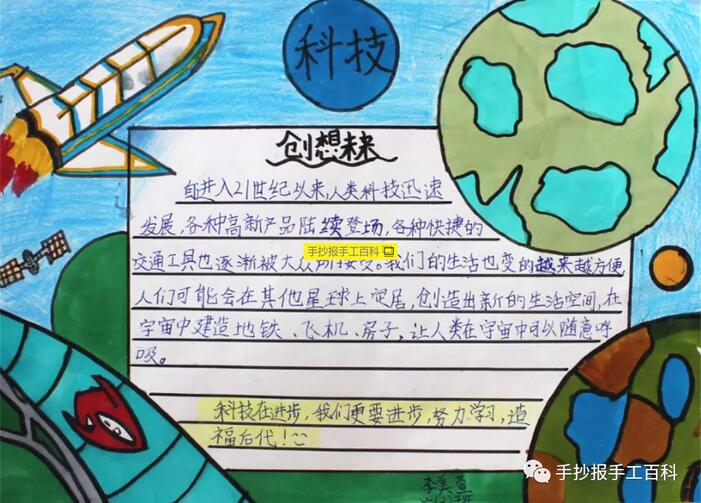 科技
创想未来
自进入21世纪以来,人类科技迅速
发展,各种高新产品陆续登场,各种快捷的
手抄报手工百科
交通工具也逐渐被大众所接受。我们的生活也变的越来越方便
人们可能会在其他星球上定居,创造出新的生活空间,在
宇宙中建造地铁、飞机、房子,让人类在宇宙中可以随意呼
吸。
科技在进步,我们更要进步,努力学习,造
福后代!
手抄报手工百科